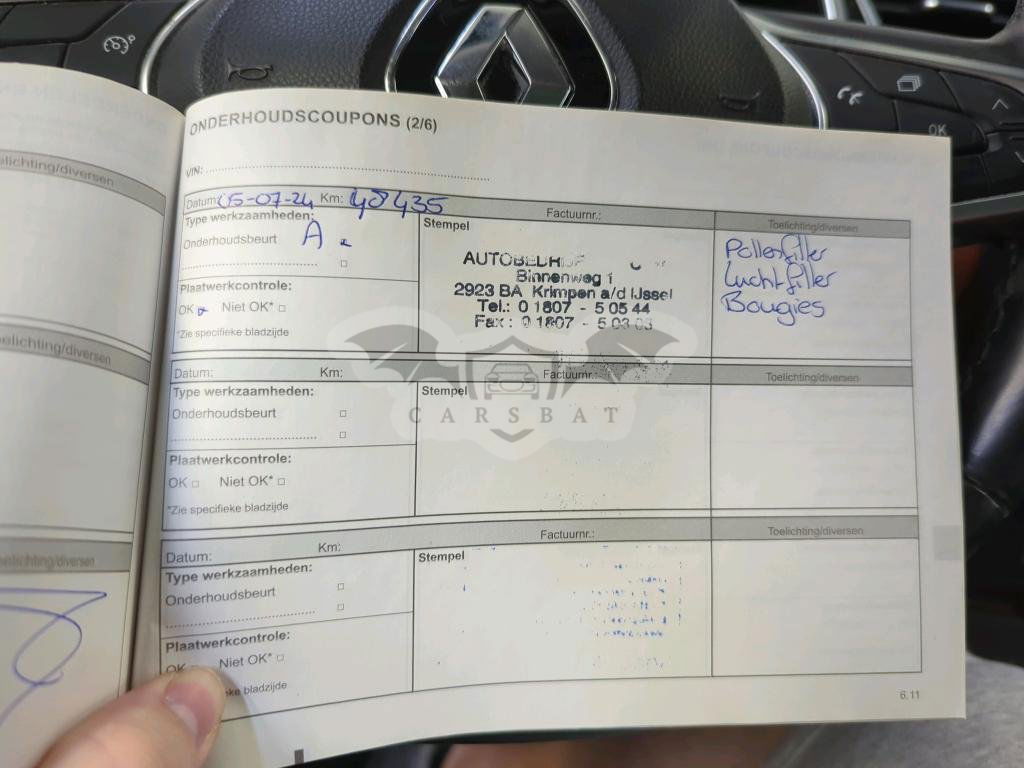 ONDERHOUDSCOUPONS (2/6)
VIN:
Datum: 05-07-24 Km: 48435 Factuurnr.:
Type werkzaamheden:
Onderhoudsbeurt A
Plaatwerkcontrole:
OK Niet OK*
*Zie specifieke bladzijde
Stempel
Binnenweg 1
2923 BA Krimpen a/d IJssel
Tel.: 0 1807 - 5 05 44
Fax : 0 1807 - 5 03 03
Toelichting/diversen
Pollenfilter
Luchtfilter
Bougies
Datum: Km: Factuurnr.:
Type werkzaamheden:
Onderhoudsbeurt
Plaatwerkcontrole:
OK Niet OK*
*Zie specifieke bladzijde
Stempel
Toelichting/diversen
CARSBAT
Datum: Km: Factuurnr.:
Type werkzaamheden:
Onderhoudsbeurt
Plaatwerkcontrole:
OK Niet OK*
bladzijde
Stempel
Toelichting/diversen
6.11
OK